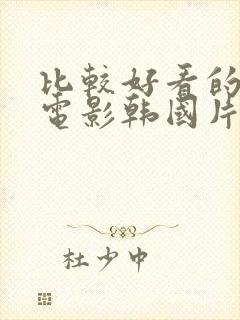 比較好看的
電影韩國片
杜少中